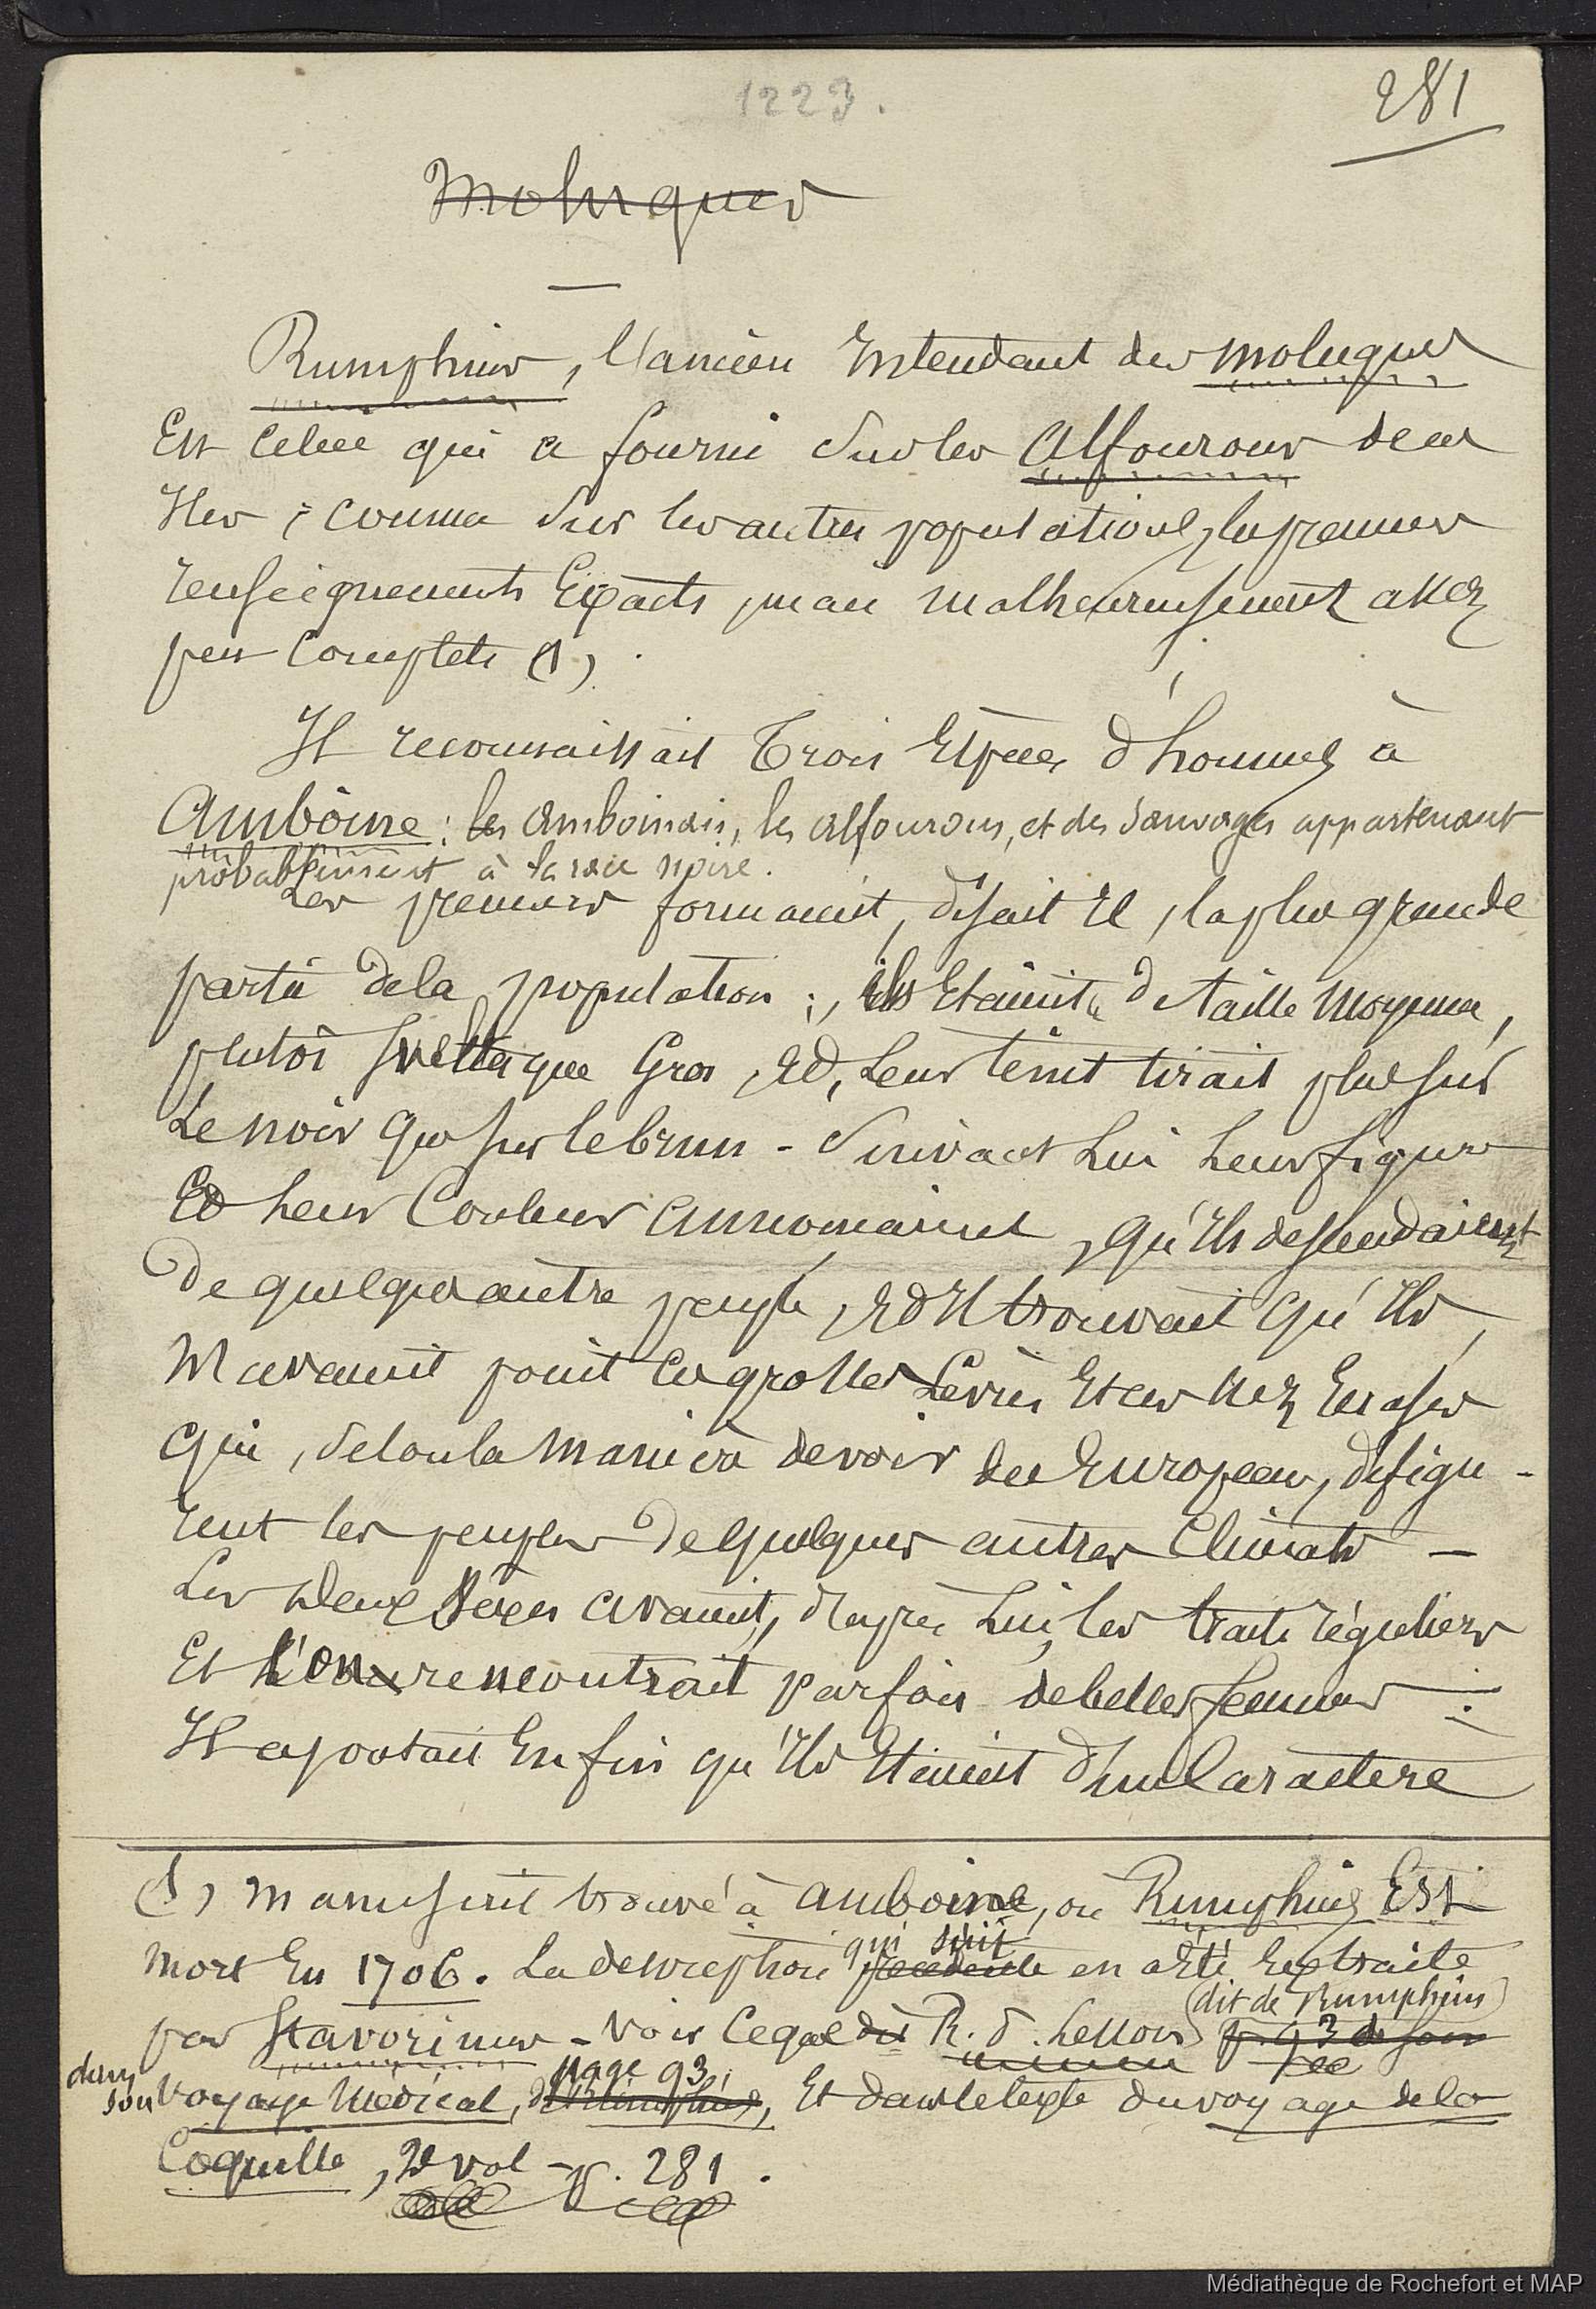 1223.
281
Moluques
Rumphius, l'ancien Intendant des Moluques
Est celui qui a fourni sur les Alfourous de ces
Iles, comme sur les autres populations, les premiers
renseignements Exacts, mais malheureusement assez
peu complets (1).
Il reconnaissait Trois Espèces d'hommes à
Amboine : les Amboinais, les Alfourous, et des sauvages appartenant
probablement à la race noire.
Les premiers formaient, disait Il, la plus grande
partie de la population ; ils Etaient de taille Moyenne,
plutôt sveltes que Gros, Et Leur teint tirait plus sur
Le noir que sur le brun - Suivant Lui Leur figure
Et Leur Couleur annonçaient, qu'Ils descendaient
De quelque autre peuple, Et Il trouvait qu'Ils
N'avaient point Ces grosses Lèvres Et ces Nez Ecrasés
Qui, selon la Manière de voir des Européens, défigu-
rent les peuples De quelques autres Climats -
Les Deux Sexes avaient, d'après Lui, les traits réguliers
Et l'on rencontrait parfois de belles femmes.
Il ajoutait Enfin qu'Ils Etaient d'un Caractère
(1) Manuscrit trouvé à Amboine, où Rumphius Est
Mort En 1706. La description précédente qui suit en a été Extraite
par Stavorinus - Voir Ce que dit R. P. Lesson (dit de Rumphius) p. 93 de son
dans son Voyage Médical, page 93, de Rumphius, Et dans le texte du voyage de la
Coquille, 2e vol - p. 281.
Médiathèque de Rochefort et MAP